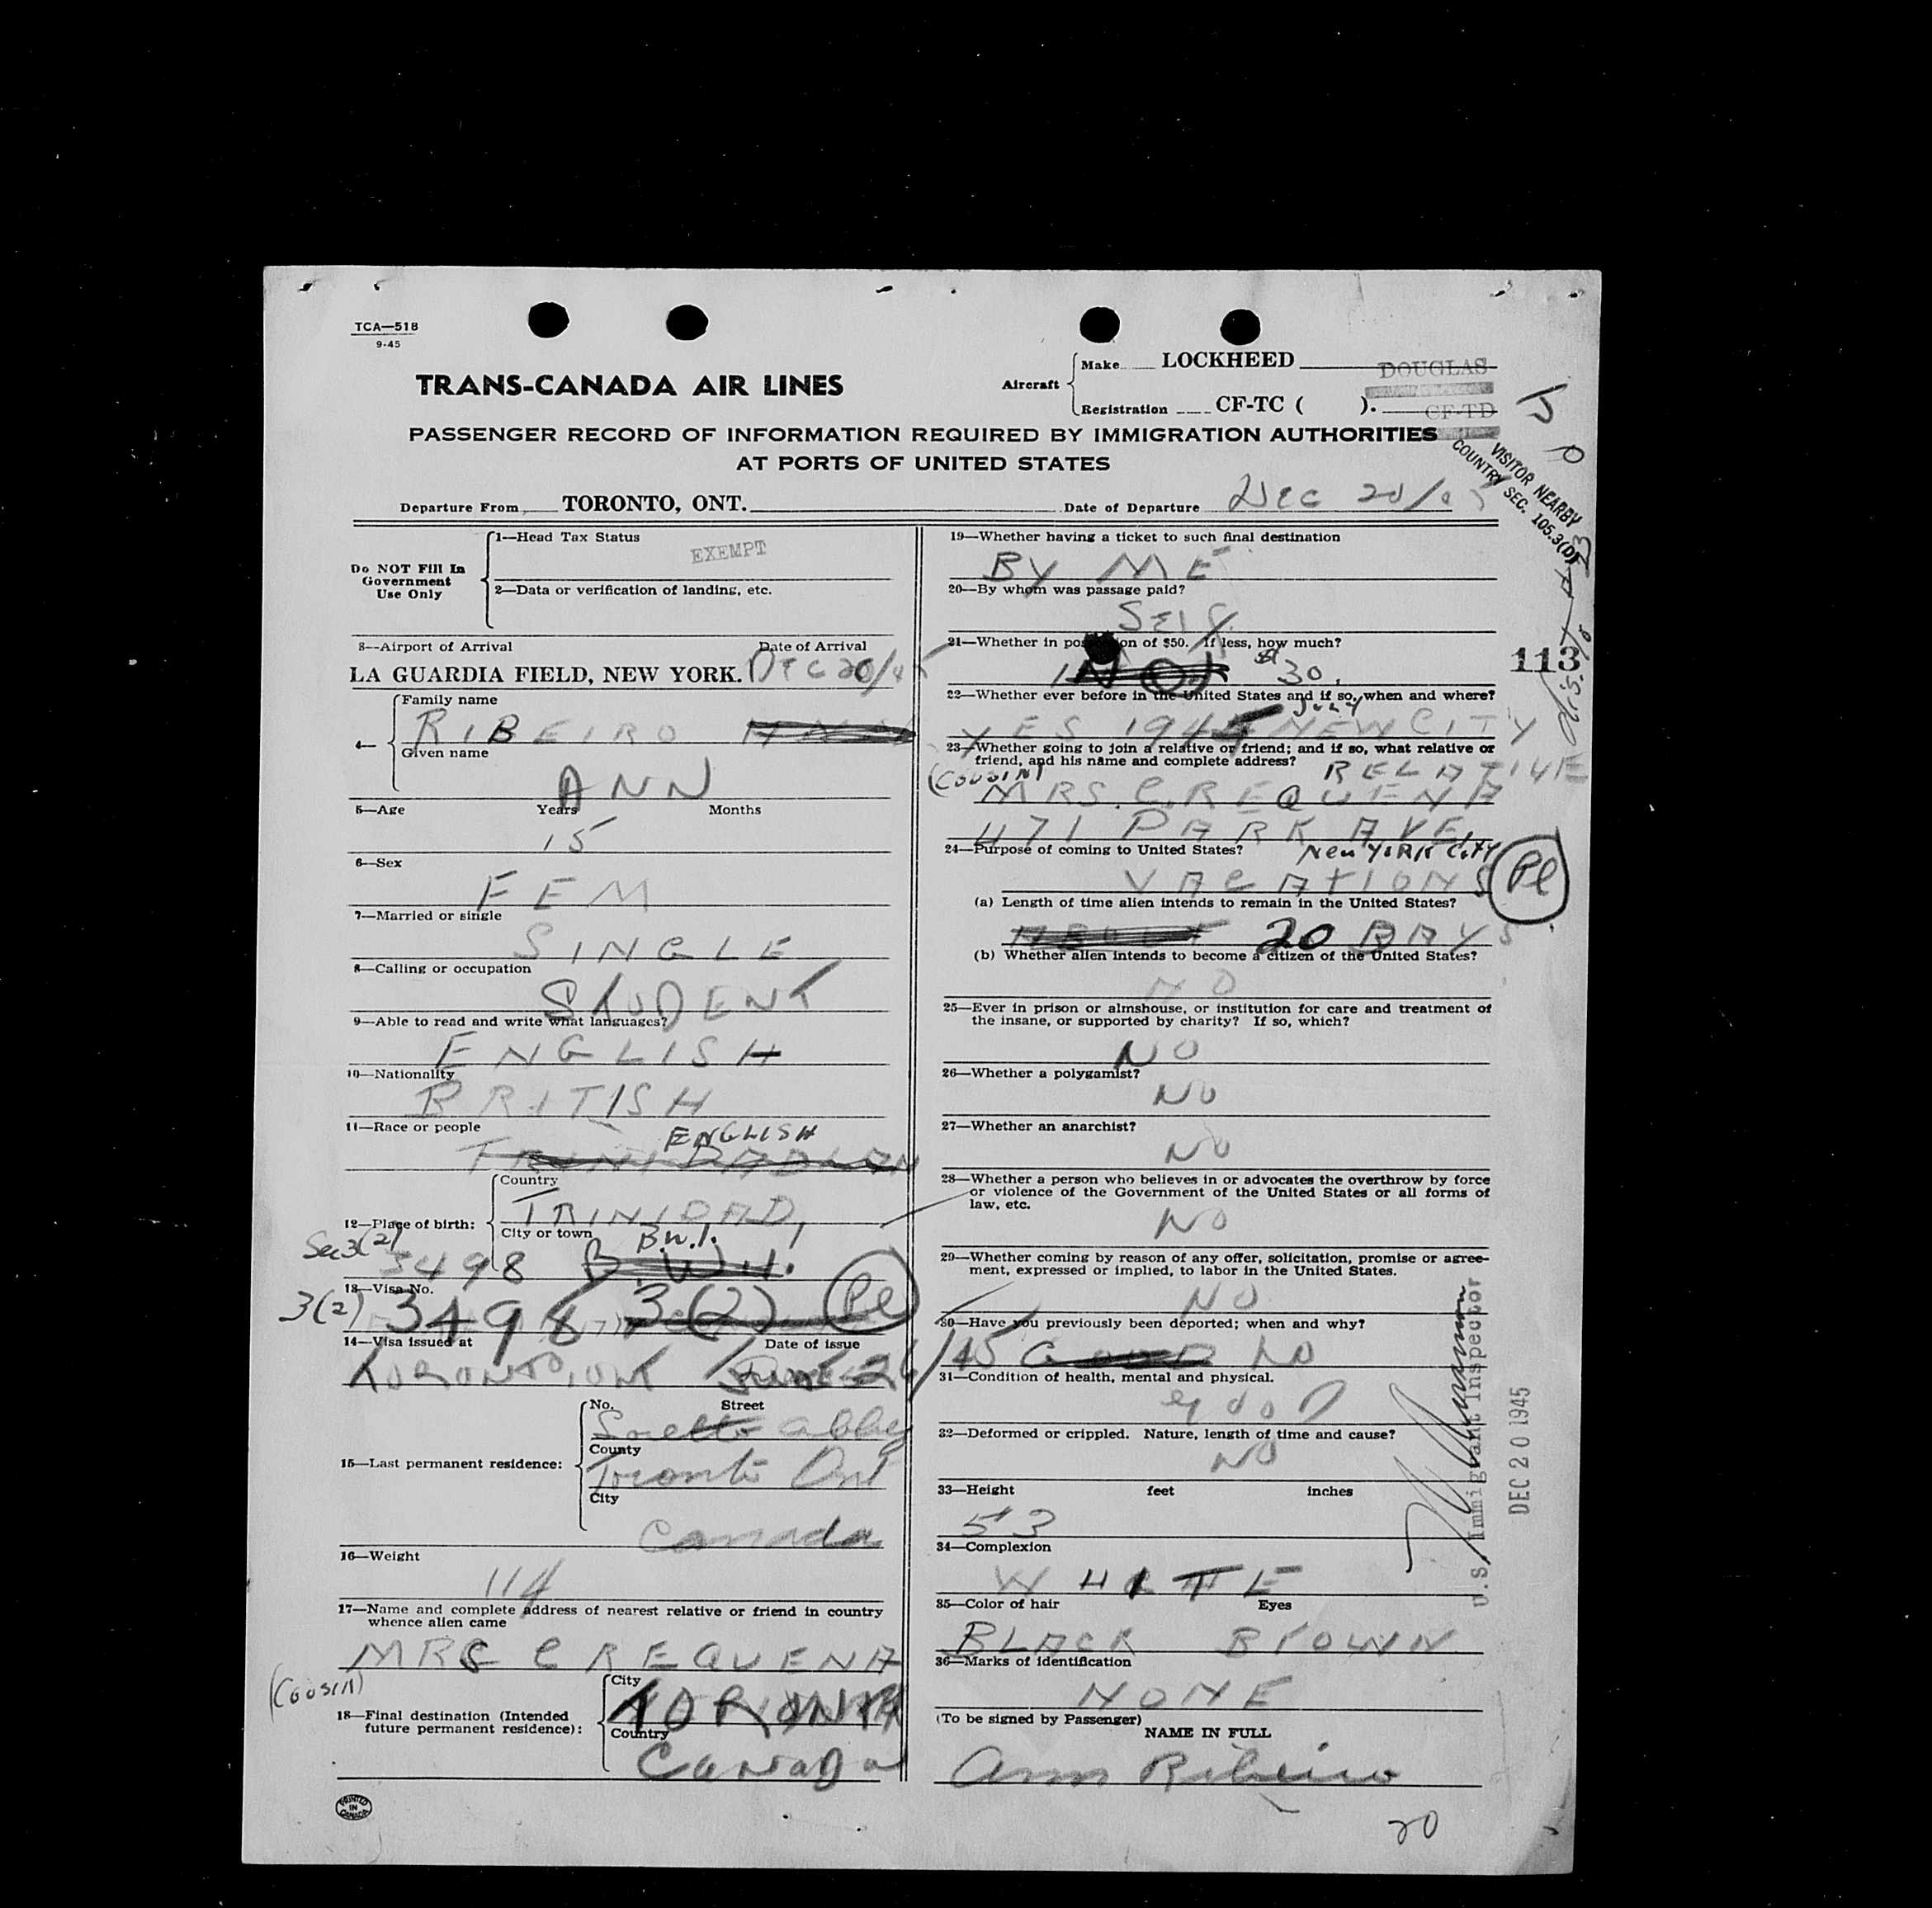 TCA—518
9-45
TRANS-CANADA AIR LINES
Aircraft
Make LOCKHEED DOUGLAS
Registration CF-TC ( ). CF-TD
PASSENGER RECORD OF INFORMATION REQUIRED BY IMMIGRATION AUTHORITIES
AT PORTS OF UNITED STATES
VISITOR NEARBY
COUNTRY SEC. 105.3(D)
Departure From TORONTO, ONT. Date of Departure DEC 20/45
Do NOT Fill In
Government
Use Only
1—Head Tax Status
EXEMPT
2—Data or verification of landing, etc.
3—Airport of Arrival Date of Arrival
LA GUARDIA FIELD, NEW YORK. DEC 20/45
4—
Family name
RIBEIRO
Given name
ANN
5—Age Years Months
15
6—Sex
FEM
7—Married or single
SINGLE
8—Calling or occupation
STUDENT
9—Able to read and write what languages?
ENGLISH
10—Nationality
BRITISH
11—Race or people
ENGLISH
TRINIDADIAN
12—Place of birth:
Country
TRINIDAD,
City or town
B.W.I.
Sec 3(2)
3498 B.W.I.
13—Visa No.
3(2) 3498 3(2) Pl
14—Visa issued at Date of issue
TORONTO, ONT June 26/45
15—Last permanent residence:
No. Street
Loretto Abbey
County
Toronto Ont
City
Canada
16—Weight
114
17—Name and complete address of nearest relative or friend in country
whence alien came
MRS C REQUENA
(COUSIN)
18—Final destination (Intended
future permanent residence):
City
TORONTO
Country
CANADA
PRINTED
IN
CANADA
19—Whether having a ticket to such final destination
BY ME
20—By whom was passage paid?
SELF
21—Whether in possession of $50. If less, how much?
$30.
113
22—Whether ever before in the United States and if so, when and where?
July
YES 1945 NEW CITY
23—Whether going to join a relative or friend; and if so, what relative or
friend, and his name and complete address? RELATIVE
(COUSIN)
MRS. C. REQUENA
471 PARK AVE,
24—Purpose of coming to United States? New YORK City
VACATIONS Pl
(a) Length of time alien intends to remain in the United States?
20 DAYS
(b) Whether alien intends to become a citizen of the United States?
NO
25—Ever in prison or almshouse, or institution for care and treatment of
the insane, or supported by charity? If so, which?
NO
26—Whether a polygamist?
NO
27—Whether an anarchist?
NO
28—Whether a person who believes in or advocates the overthrow by force
or violence of the Government of the United States or all forms of
law, etc.
NO
29—Whether coming by reason of any offer, solicitation, promise or agree-
ment, expressed or implied, to labor in the United States.
NO
30—Have you previously been deported; when and why?
GOOD NO
31—Condition of health, mental and physical.
good
32—Deformed or crippled. Nature, length of time and cause?
NO
33—Height feet inches
5 3
34—Complexion
WHITE
35—Color of hair Eyes
BLACK BROWN
36—Marks of identification
NONE
(To be signed by Passenger)
NAME IN FULL
Ann Ribeiro
20
U.S. Immigrant Inspector
DEC 20 1945